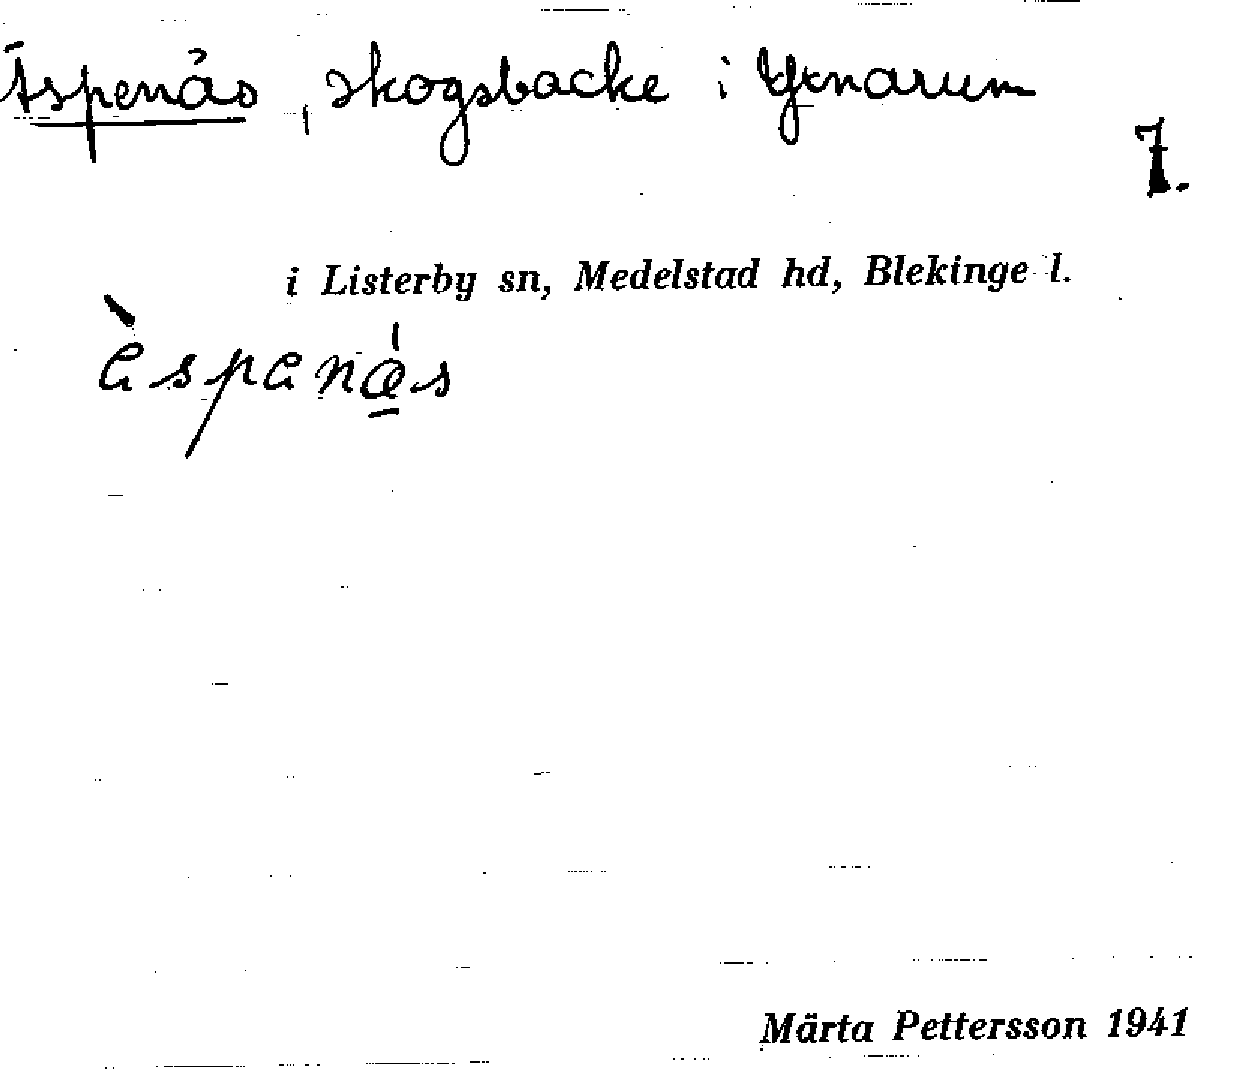 Äspenäs, skogsbacke i Yxnarum
7.
i Listerby sn, Medelstad hd, Blekinge l.
èspenæ̲s
Märta Pettersson 1941